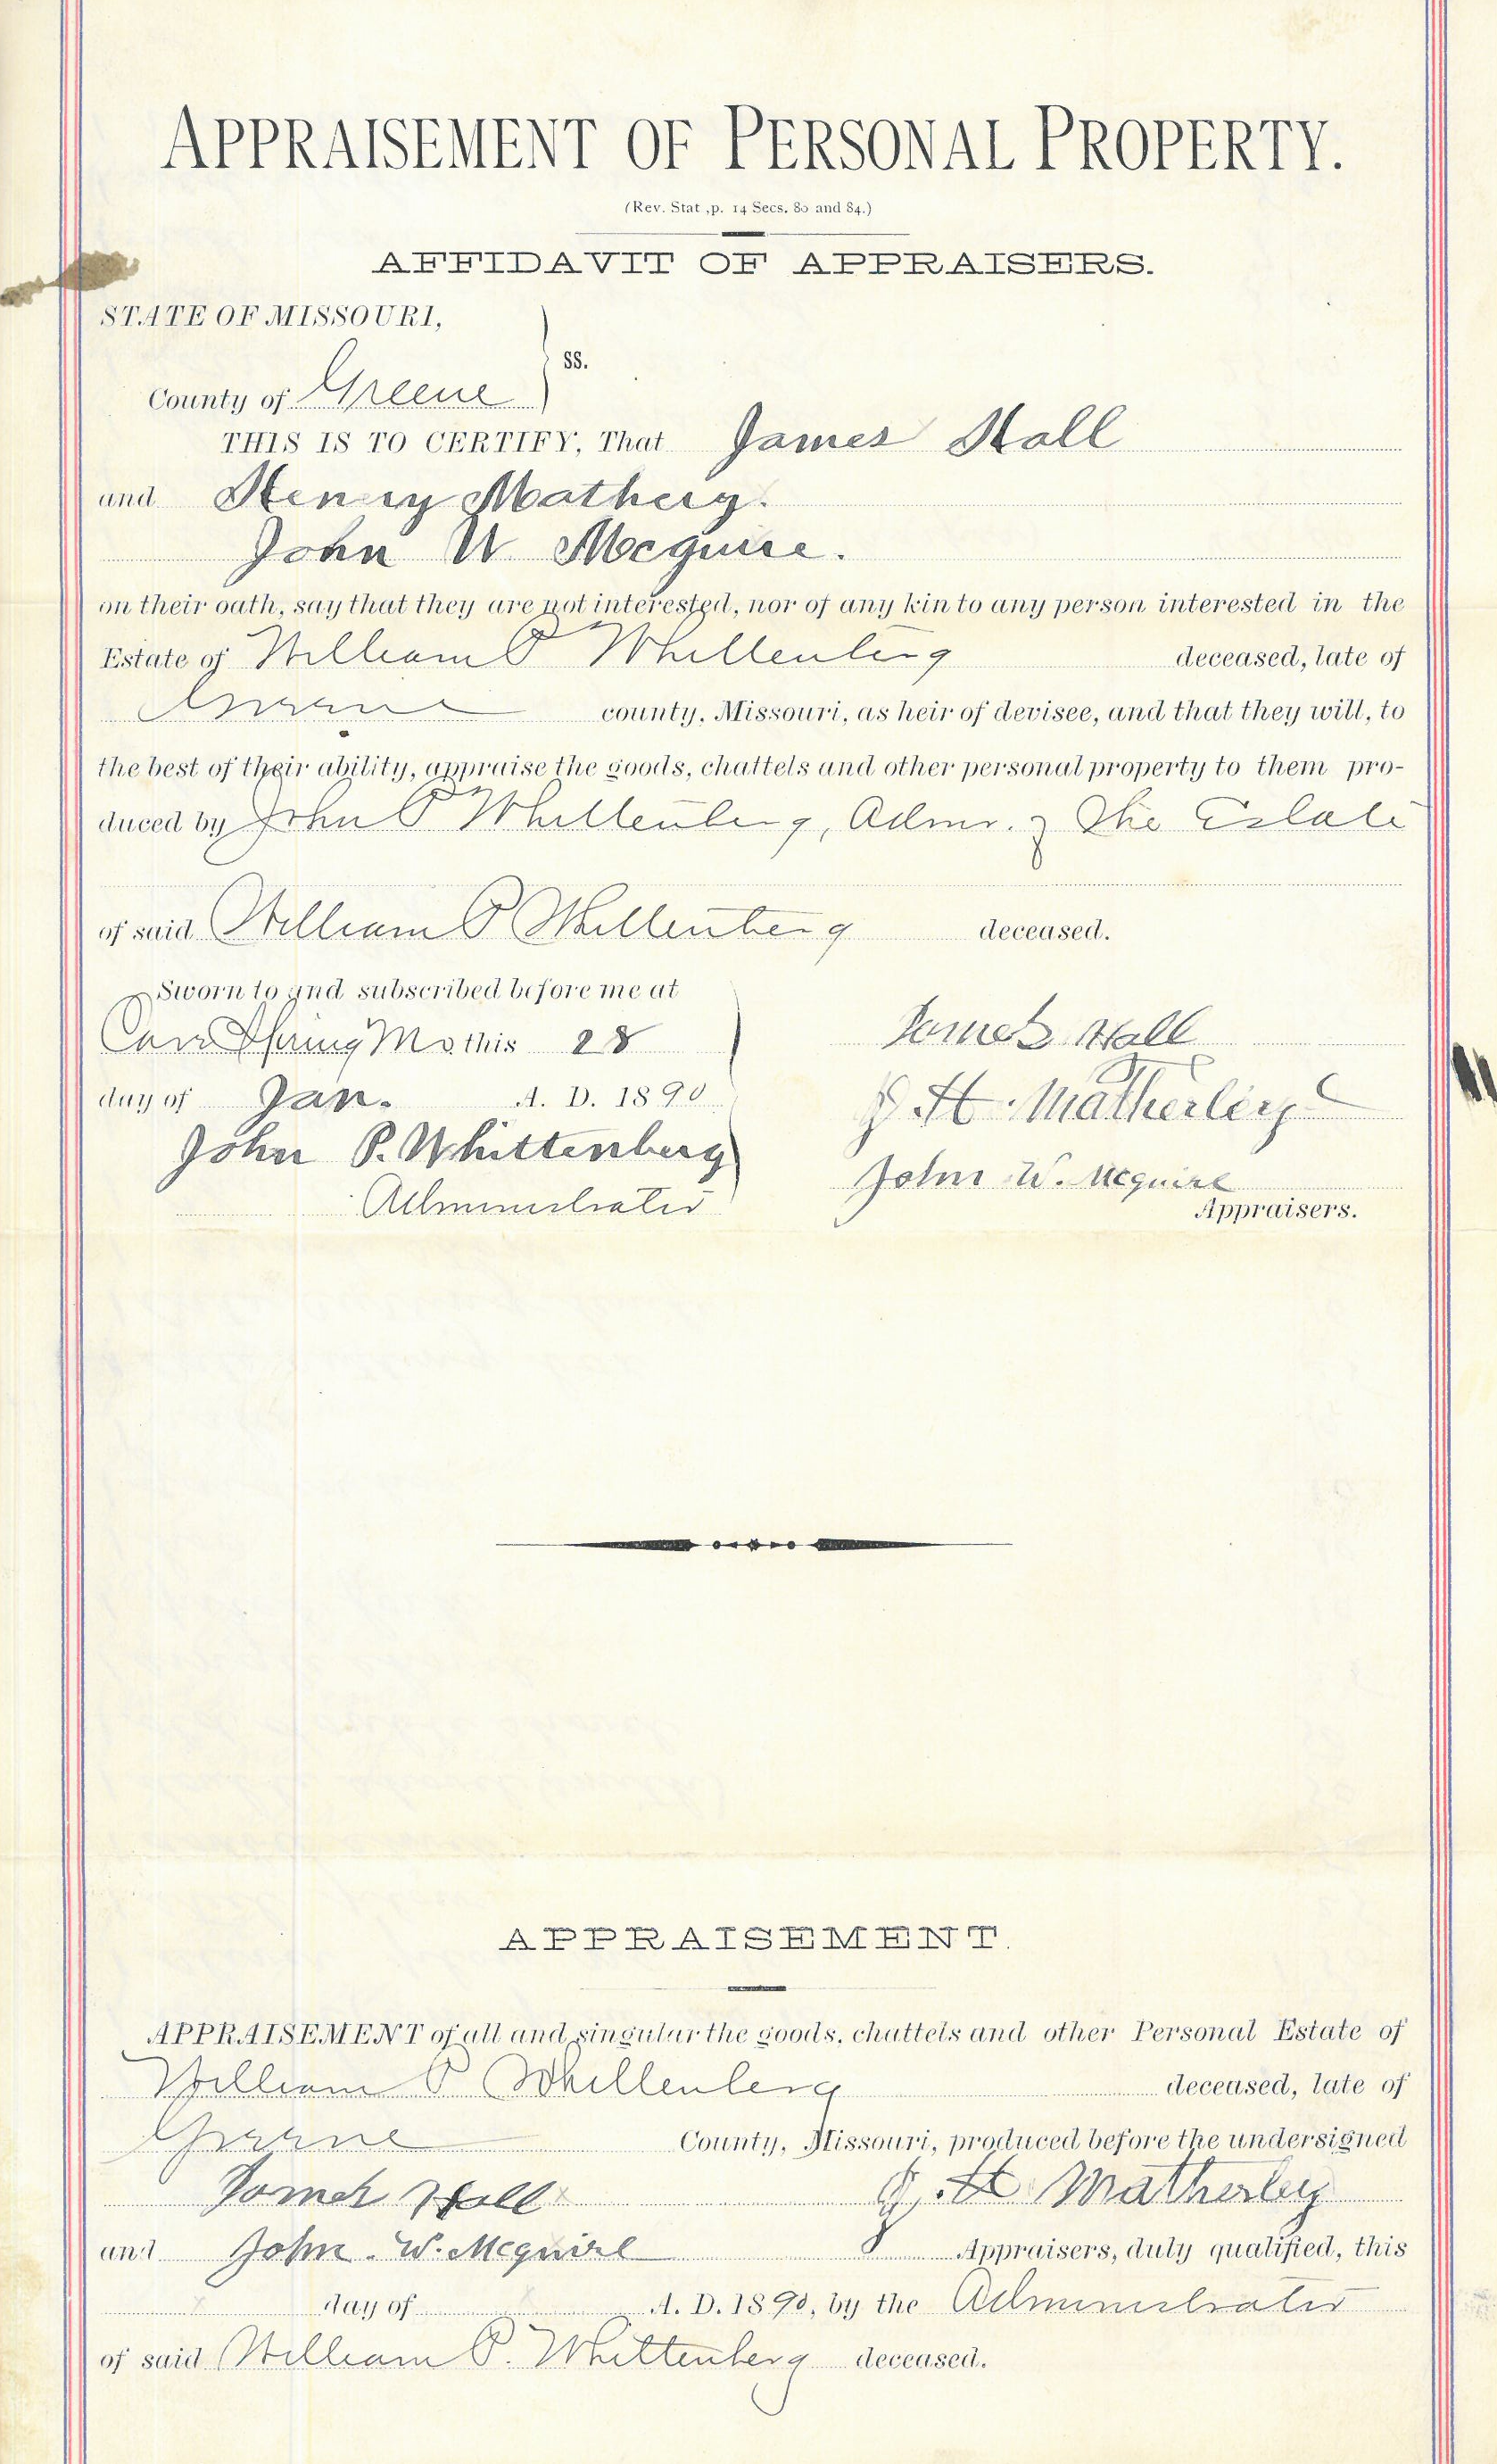 APPRAISEMENT OF PERSONAL PROPERTY.
(Rev. Stat ,p. 14 Secs. 80 and 84.)
AFFIDAVIT OF APPRAISERS.
STATE OF MISSOURI,
ss.
County of Greene
THIS IS TO CERTIFY, That James Hall
and Henry Mathery.
John W Mcguire.
on their oath, say that they are not interested, nor of any kin to any person interested in the
Estate of William P Whittenberg deceased, late of
Greene county, Missouri, as heir of devisee, and that they will, to
the best of their ability, appraise the goods, chattels and other personal property to them pro-
duced by John P Whittenberg, Admr. of The Estate
of said William P Whittenberg deceased.
Sworn to and subscribed before me at
Cave Spring Mo this 28
day of Jan. A. D. 1890
John P. Whittenberg
Administrator
James Hall
J H Matherley
John W. Mcguire
Appraisers.
APPRAISEMENT.
APPRAISEMENT of all and singular the goods, chattels and other Personal Estate of
William P Whittenberg deceased, late of
Greene County, Missouri, produced before the undersigned
James Hall J. H Matherley
and John. W. Mcguire Appraisers, duly qualified, this
day of A. D. 1890, by the Administrator
of said William P. Whittenberg deceased.